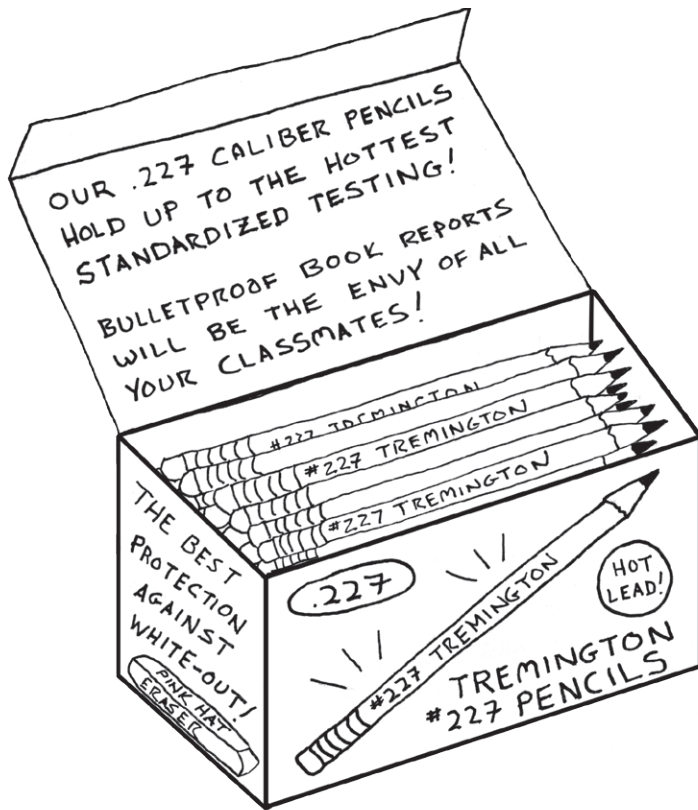 OUR .227 CALIBER PENCILS
HOLD UP TO THE HOTTEST
STANDARDIZED TESTING!
BULLETPROOF BOOK REPORTS
WILL BE THE ENVY OF ALL
YOUR CLASSMATES!
#227 TREMINGTON
#227 TREMINGTON
#227 TREMINGTON
THE BEST
PROTECTION
AGAINST
WHITE-OUT!
PINK HAT
ERASER
.227
#227 TREMINGTON
HOT
LEAD!
TREMINGTON
#227 PENCILS